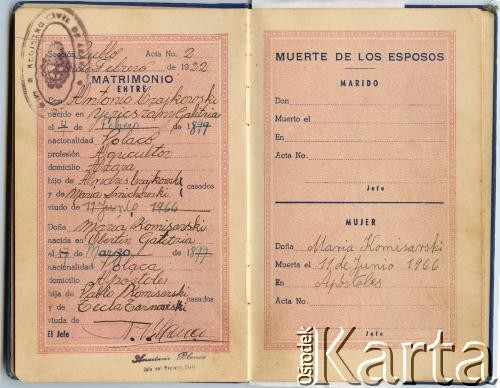 REGISTRO CIVIL DE
Sección Pueblo Acta No. 2
Febrero de 1922
MATRIMONIO
ENTRE
Don Antonio Czajkowski
nacido en Galitzia
el 4 de Febrero de 1897
nacionalidad Polaco
profesión Agricultor
domicilio Azara
hijo de Andres Czajkowski
y de Maria casados
viudo de 11 Junio 1966
Doña Maria Komisarski
nacida en Obertin Galitzia
el 17 de Marzo de 1899
nacionalidad Polaca
domicilio Apostoles
hija de Pablo Komisarski
y de Tecla Tarnowski casados
viuda de
El Jefe
Anastacio Blanco
Jefe del Registro Civil
MUERTE DE LOS ESPOSOS
MARIDO
Don
Muerto el
En
Acta No.
Jefe
MUJER
Doña Maria Komisarski
Muerta el 11 de Junio 1966
En Apostoles
Acta No.
Jefe
Ośrodek
Karta